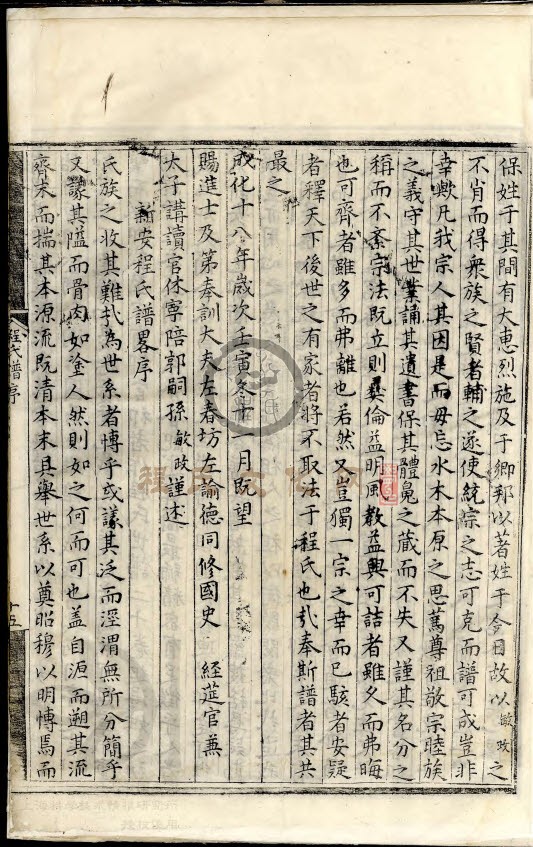 保姓于其間有大惠烈施及于鄉邦以著姓于今日故以敏政之
不肖而得衆族之賢者輔之遂使統宗之志可克而譜可成豈非
幸歟凡我宗人其因是而毋忘水木本原之思篤尊祖敬宗睦族
之義守其世業誦其遺書保其體魄之蔵而不失又謹其名分之
稱而不紊宗法既立則彝倫益明風教益興可詰者雖久而弗晦
也可齊者雖多而弗離也若然又豈獨一宗之幸而已駭者安疑
者釋天下後世之有家者將不取法于程氏也㢤奉斯譜者其共
最之
成化十八年歲次壬寅冬十一月既望
賜進士及第奉訓大夫左春坊左諭德同修國史 經莚官兼
太子講讀官休寧陪郭嗣孫敏政謹述
新安程氏譜畧序
氏族之收其難㢤為世系者博乎或議其泛而涇渭無所分簡乎
又議其隘而骨肉如途人然則如之何而可也盖自源而遡其流
齊末而揣其本源流既清本末具舉世系以奠昭穆以明博焉而
程氏譜序
十五